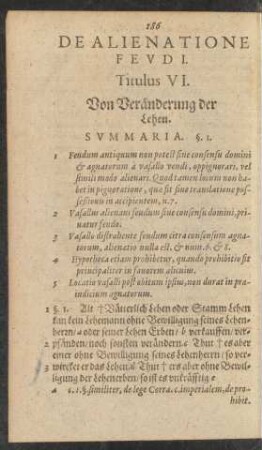 186
DE ALIENATIONE
FEVDI.
Titulus VI.
Von Veränderung der
Lehen.
SVMMARIA. §. 1.
1 Feudum antiquum non potest sine consensu domini
& agnatorum à vasallo vendi, oppignorari, vel
simili modo alienari. Quod tamen locum non ha-
bet in pignoratione, quæ sit sine translatione pos-
sessionis in accipientem, n. 7.
2 Vasallus alienans feudum sine consensu domini, pri-
vatur feudo.
3 Vasallo distrahente feudum citra consensum agna-
torum, alienatio nulla est, & num. 6. & 8.
4 Hypotheca etiam prohibetur, quando prohibitio sit
principaliter in favorem alicuius.
5 Locatio vasalli post obitum ipsius, non durat in præ-
iudicium agnatorum.
1 §. 1. Alt † Väterlich Lehen oder Stamm Lehen
kan kein Lehemann ohne Bewilligung seines Lehen-
herrn/ a oder seiner Lehen Erben/ b verkauffen/ ver-
2 pfänden/ noch sonsten verändern. c Thut † es aber
einer ohne Bewilligung seines Lehenherrn/ so ver-
3 wircket er das Lehen. d Thut † ers aber ohne Bewil-
ligung der Lehenerben/ so ist es unkräfftig e
a c. 1. §. similiter, de lege Corra. c. imperialem, de pro-
hibit.